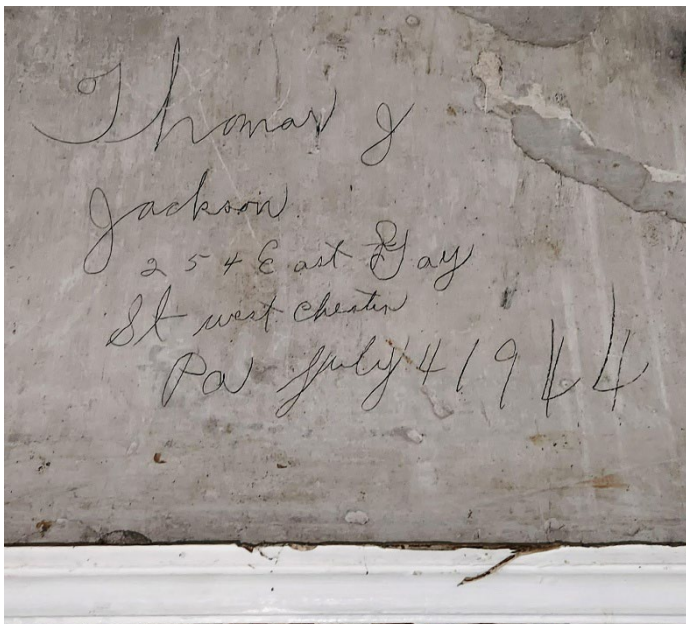 Thomas J
Jackson
254 East Gay
St west Chester
Pa July 4 1944